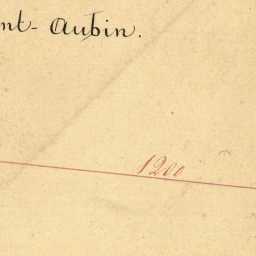 nt-Aubin.
1200